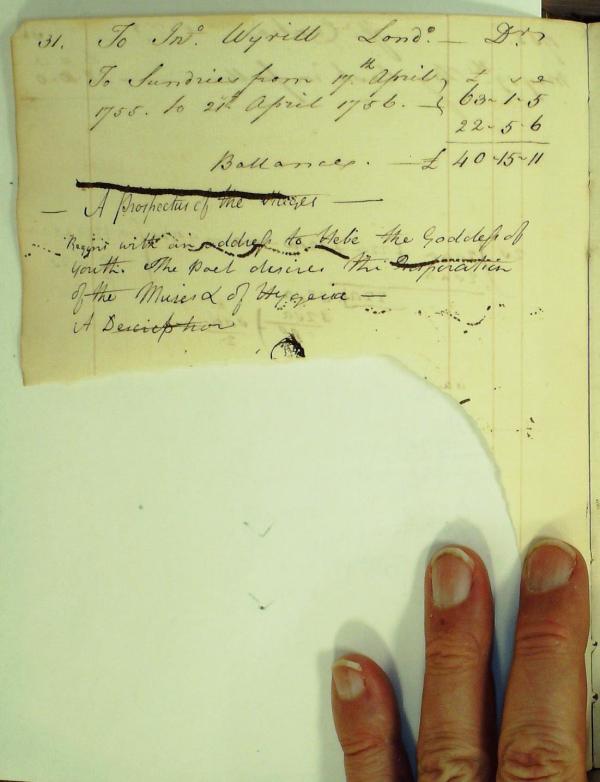 31. To Jno. Wyrill Londo. — Dr.
To Sundries from 17th April £ s d
1755. to 21st April 1756. — 63 - 1 - 5
22 - 5 - 6
Ballances. — £ 40 - 15 - 11
— A Prospectus of the Stages —
Begins with an address to Hebe the Goddess of
Youth. The Poet desires the Inspiration
of the Muses & of Hygeia —
A Description